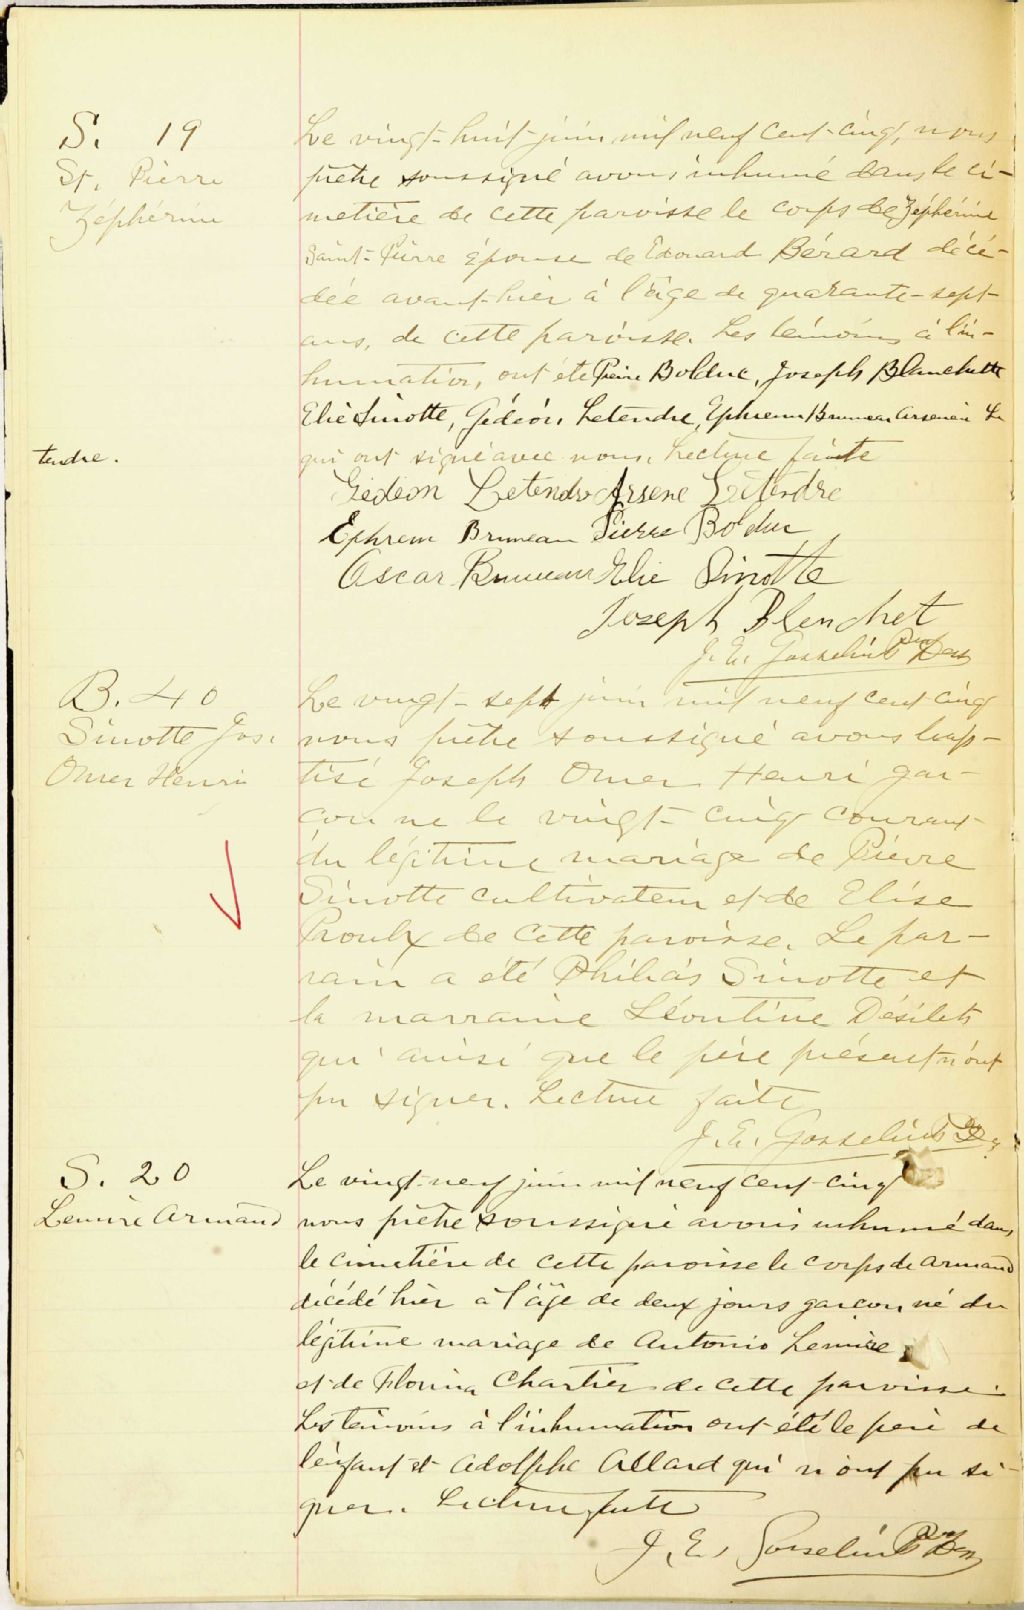 S. 19
St. Pierre
Zéphérine
Le vingt-huit juin mil neuf cent-cinq, nous
prêtre soussigné avons inhumé dans le ci-
metière de cette paroisse le corps de Zéphérine
Saint-Pierre épouse de Edouard Bérard décé-
dée avant-hier à l'âge de quarante-sept
ans, de cette paroisse. Les témoins à l'in-
humation, ont été Pierre Bolduc, Joseph Blanchette
Elie Sinotte, Gédéon Letendre, Ephrem Bruneau Arsène Le
tendre.
qui ont signé avec nous. Lecture faite
Gédéon Letendre Arsene Letendre
Ephrem Bruneau Pierre Bolduc
Oscar Bruneau Elie Sinotte
Joseph Blenchet
J. E. Gosselin Ptre
B. 40
Sinotte Jos.
Omer Henri
Le vingt-sept juin mil neuf cent cinq
nous prêtre soussigné avons bap-
tisé Joseph Omer Henri gar-
çon né le vingt-cinq courant
du légitime mariage de Pierre
Sinotte cultivateur et de Elise
Proulx de cette paroisse. Le par-
rain a été Philias Sinotte et
la marraine Léontine Désilets
qui ainsi que le père présent n'ont
pu signer. Lecture faite
J. E. Gosselin Ptre
S. 20
Lemire Armand
Le vingt-neuf juin mil neuf cent-cinq
nous prêtre soussigné avons inhumé dans
le cimetière de cette paroisse le corps de Armand
décédé hier à l'âge de deux jours garçon né du
légitime mariage de Antonio Lemire
et de Florina Chartier de cette paroisse.
Les témoins à l'inhumation ont été le père de
l'enfant et Adolphe Allard qui n'ont pu si-
gner. Lecture faite
J. E. Gosselin Ptre